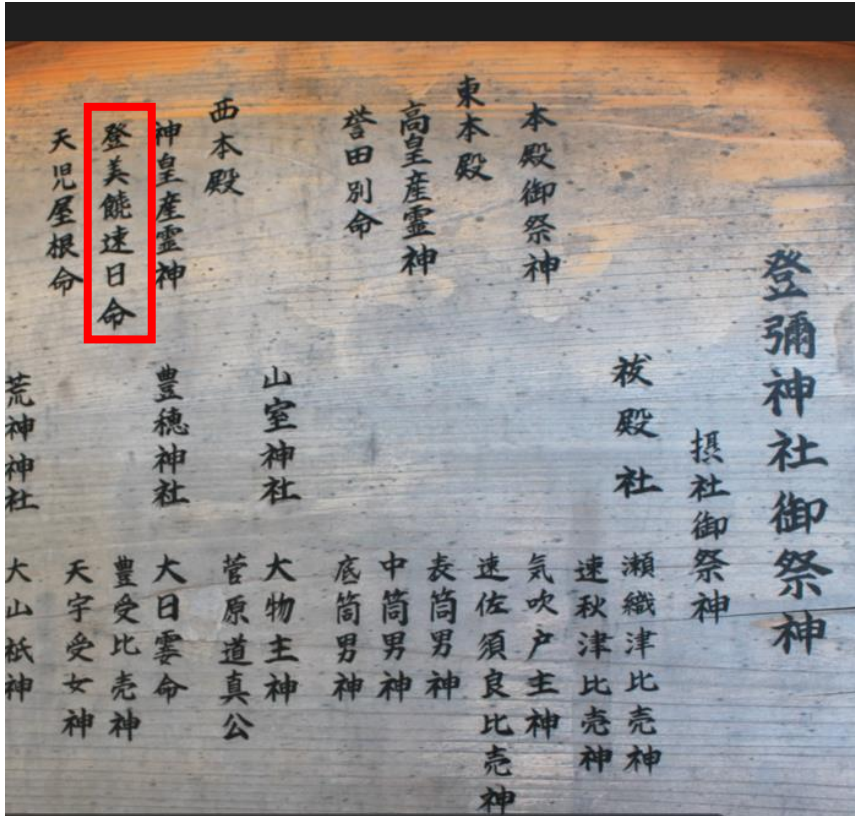 登彌神社御祭神
本殿御祭神
東本殿
高皇産霊神
誉田別命
西本殿
神皇産霊神
登美饒速日命
天児屋根命
摂社御祭神
祓殿社
瀬織津比売神
速秋津比売神
気吹戸主神
速佐須良比売神
表筒男神
中筒男神
底筒男神
山室神社
大物主神
菅原道真公
豊穂神社
大日霎命
豊受比売神
天宇受女神
荒神神社
大山祇神